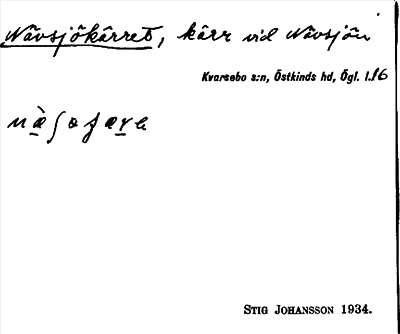 Nävsjökärret, kärr vid Nävsjön
Kvarsebo s:n, Östkinds hd, Ögl. l.16
STIG JOHANSSON 1934.